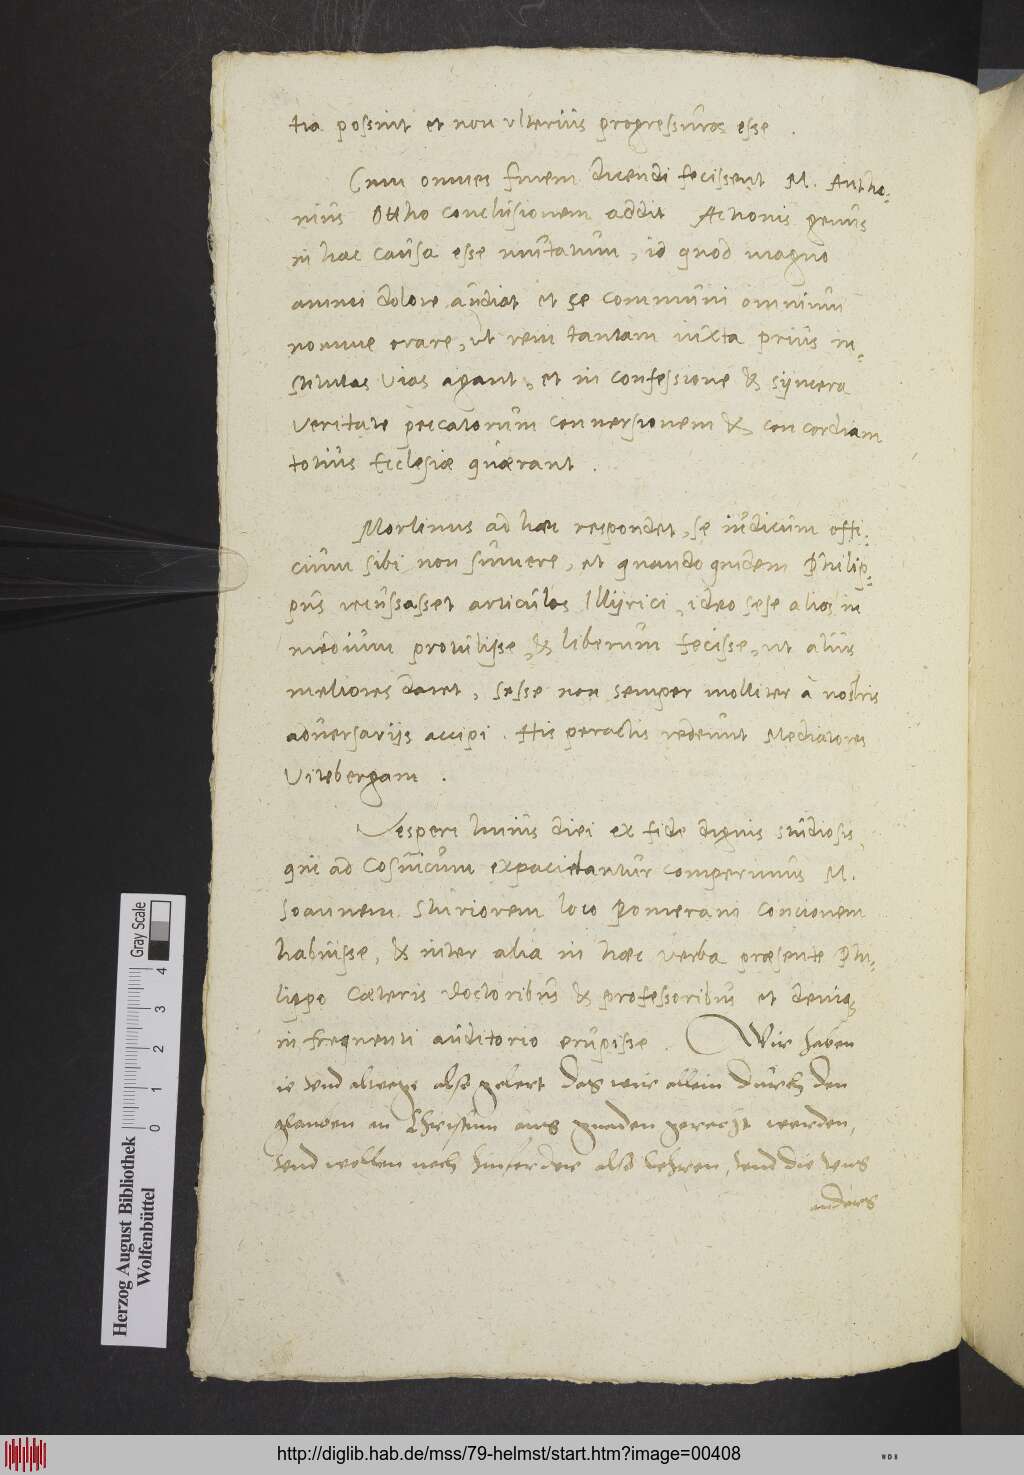 tia possint et non ulterius progressuros esse .
Cum omnes finem dicendi fecissent M. Antho-
nius Ottho conclusionem addit Actionis genus
in hac causa esse mutatum, id quod magno
animi dolore audiat et se communi omnium
nomine orare, ut rem tantam iuxta prius in-
stitutas vias agant, et in confessione & syncera
veritate peccatorum conversionem & concordiam
totius Ecclesiæ quærant .
Morlinus ad hæc respondet, se iudicum offi-
cium sibi non sumere, et quandoquidem Philip-
pus recussasset articulos Illyrici, ideo sese alios in
medium protulisse, & liberum fecisse, ut alius
meliores daret, sesse non semper molliter à nostris
adversarijs accipi . His peractis redeunt Mediatores
Vitebergam .
Vesperi huius diei ex fide dignis studiosis,
qui ad Cosuicum expaciebantur comperimus M.
Joannem Sturiorem loco Pomerani concionem
habuisse, & inter alia in hæc verba præsente Phi-
lippo cæteris doctoribus & professoribus et deniq;
in frequenti auditorio erupisse . Wir haben
ie vnd alwege also gelert das wir allein durch den
glauben an Christum aus gnaden gerecht werden,
vnd wollen noch hinfurder also lehren, vnd die vns
anders
Gray Scale
0 1 2 3 4
Herzog August Bibliothek
Wolfenbüttel
http://diglib.hab.de/mss/79-helmst/start.htm?image=00408
WDB